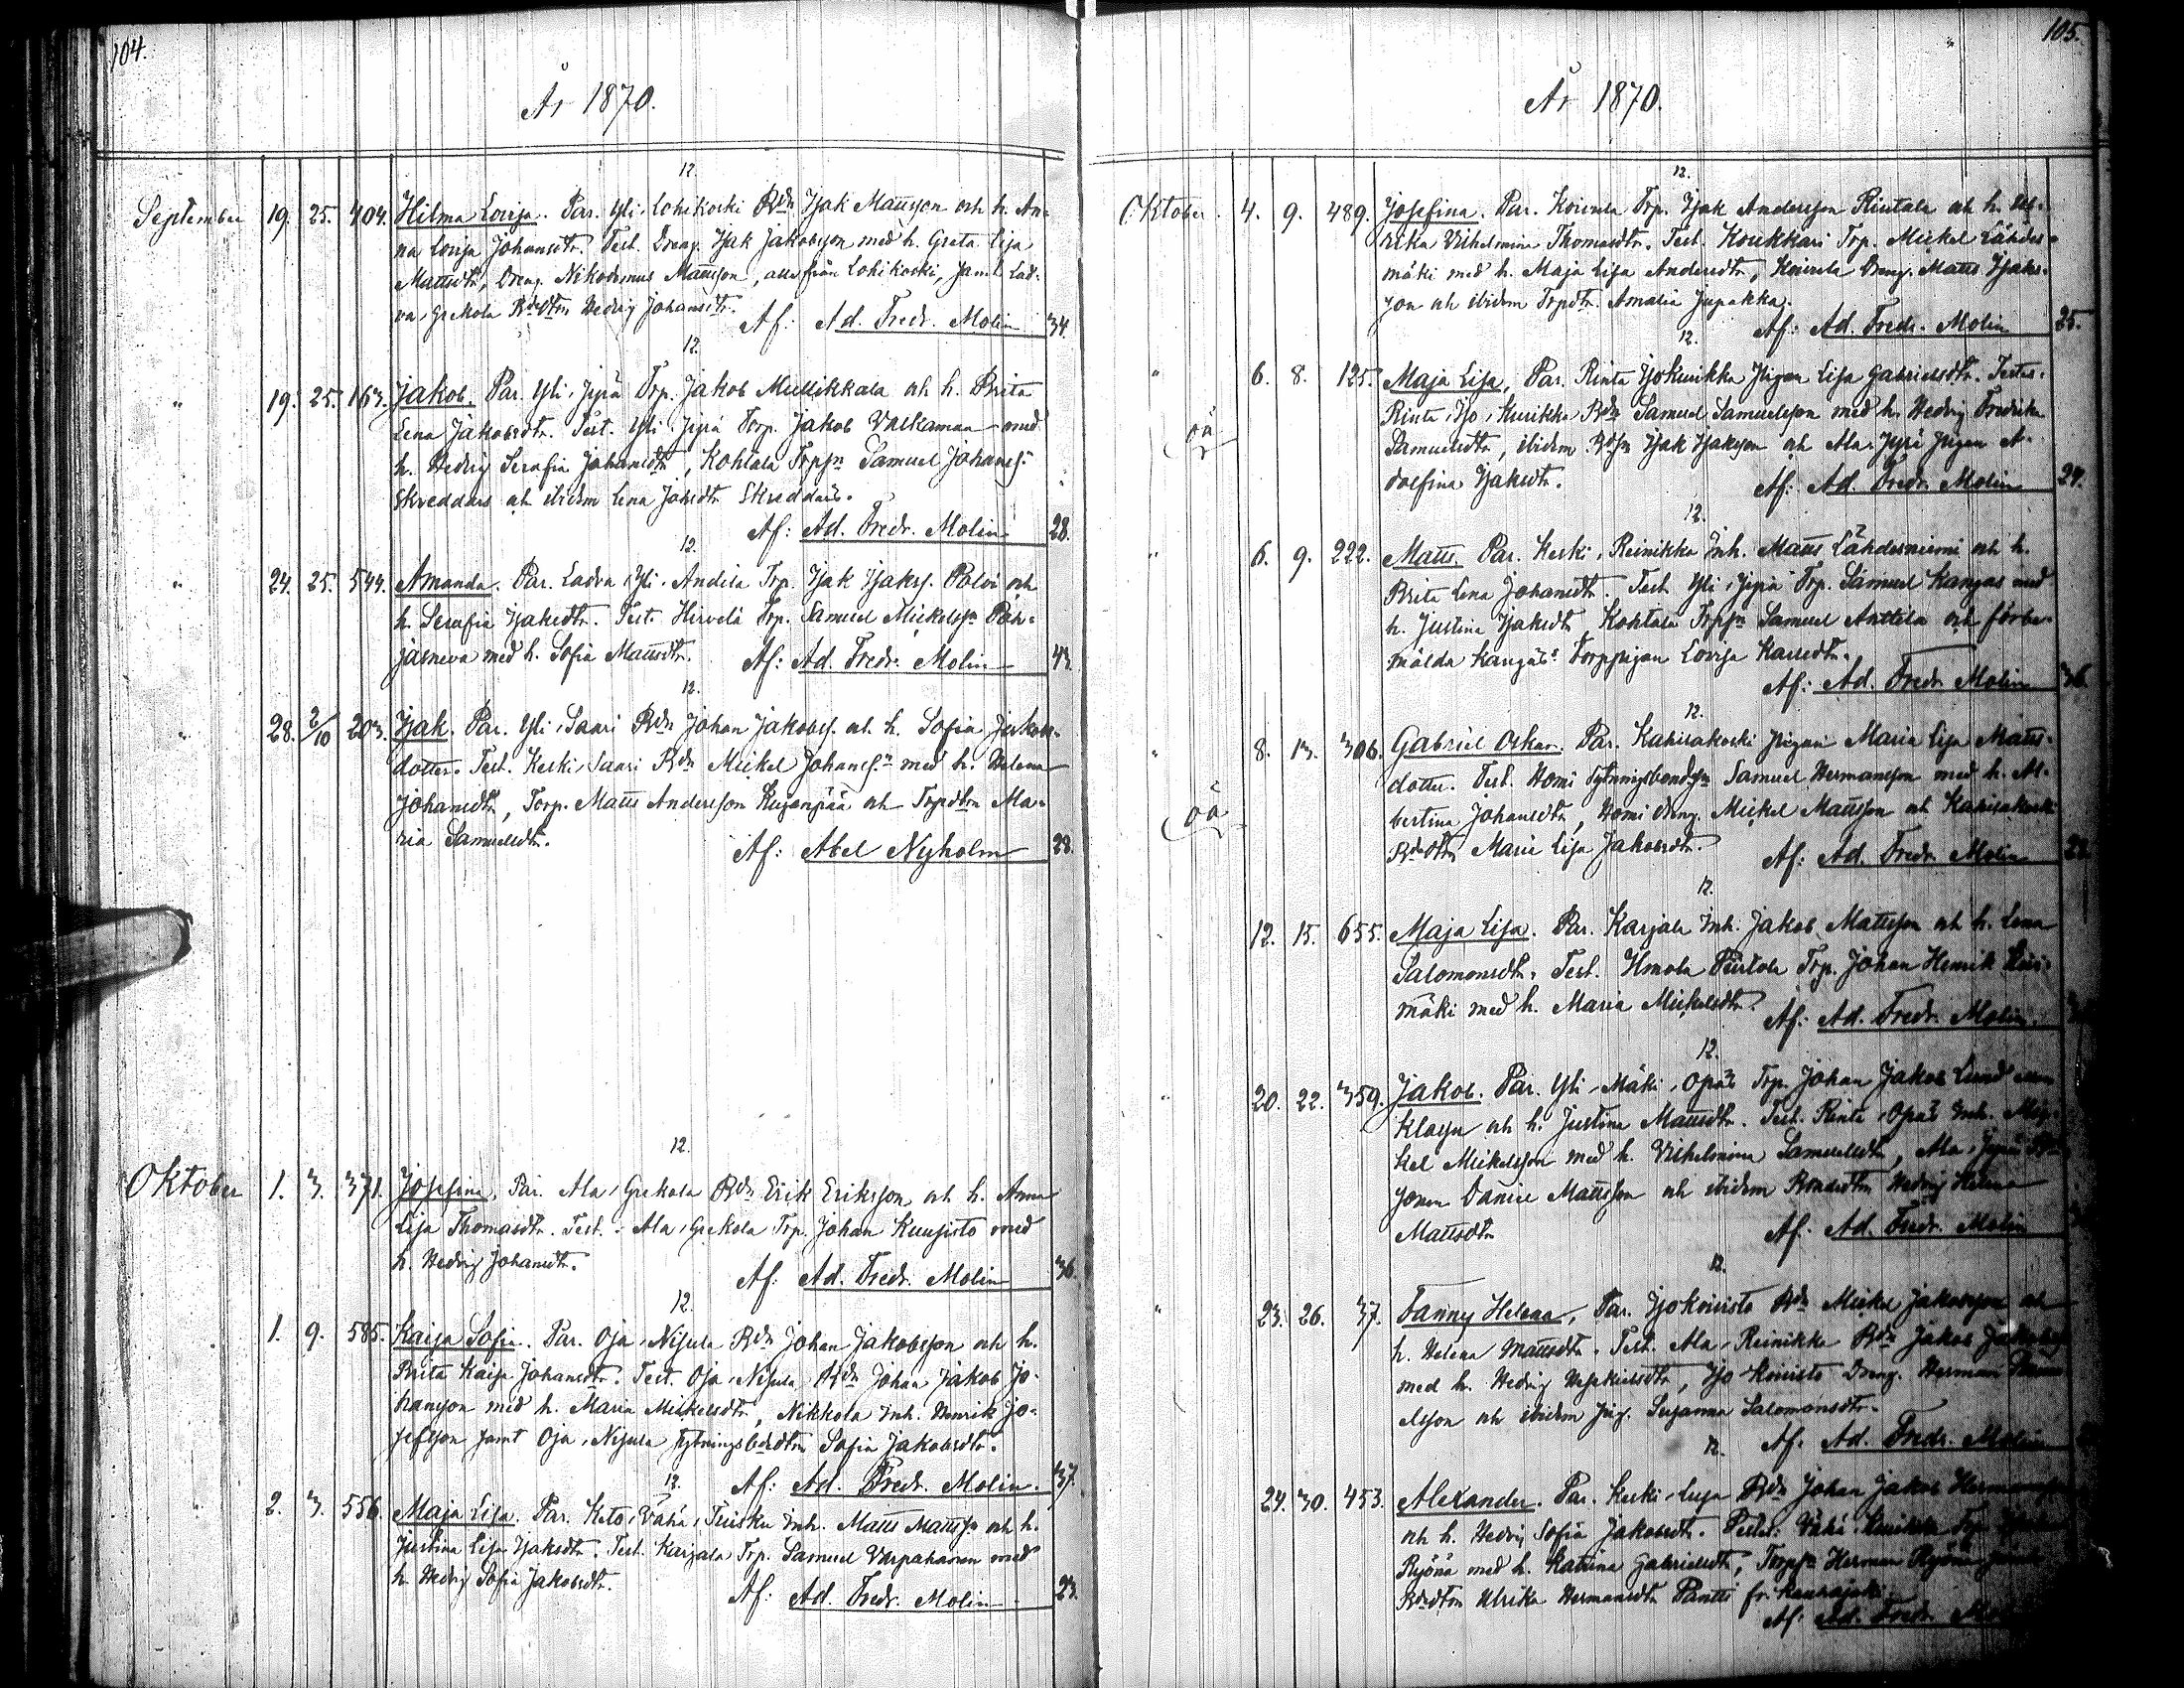 104.
År 1870.
12.
September 19. 25. 404. Hilma Lovisa. Par. Yli-Lohikoski Bdn Isak Mattsson och h. An-
na Lovisa Johansdtr. Test. Dreng. Isak Jakobsson med h. Greta Lisa
Mattsdtr, Dreng. Nikodemus Mattsson, alla från Lohikoski, samt Lad-
va, Grekola Bdedtrn Hedvig Johansdtr.
Af: Ad. Fredr. Molin 34.
12.
" 19. 25. 163. Jakob. Par. Yli-Jyrä Torp. Jakob Mullikkala och h. Brita
Lena Jakobsdtr. Test. Yli-Jyrä Torp. Jakob Valkaman med
h. Hedvig Serafia Johansdtr, Kohtala Torpsn Samuel Johanss.
Skreddars och ibidm Lena Jakdtr Skreddars.
Af: Ad. Fredr. Molin 28.
12.
" 24. 25. 544. Amanda. Par. Ladva Yli-Andila Trp. Isak Isakss. Polvi och
h. Serafia Isaksdtr. Test. Hirvelä Trp. Samuel Mickelssn Poh-
jasneva med h. Sofia Mattsdtr. Af: Ad. Fredr. Molin 43.
12.
" 28. 2/10 203. Isak. Par. Yli-Saari Bdn Johan Jakobss. och h. Sofia Jakobs-
dotter. Test. Keski-Saari Bdn Mickel Johanss.n med h. Helena
Johansdtr, Torp. Matts Andersson Kujanpää och Trpdtrn Ma-
ria Samuelsdtr.
Af: Abel Nyholm 28.
12.
Oktober 1. 3. 371. Josefina. Par. Ala-Grekola Bdn Erik Eriksson och h. Anna
Lisa Thomasdtr. Test. Ala-Grekola Trp. Johan Kuusisto med
h. Hedvig Johansdtr.
Af: Ad. Fredr. Molin 36.
12.
1. 9. 585. Kaisa Sofia. Par. Oja-Nisula Bdn Johan Jakobsson och h.
Brita Kaisa Johansdtr. Test. Oja-Nisula Bdn Johan Jakob Jo-
hansson med h. Maria Mickelsdtr, Nikkola Inh. Henrik Jo-
sefsson samt Oja-Nisula Sytningsbdedtrn Sofia Jakobsdtr.
Af: Ad. Fredr. Molin. 37.
12.
2. 3. 556. Maja Lisa. Par. Keto-Vähä-Tuisku Inh. Matts Mattssn och h.
Justina Lisa Isaksdtr. Test. Karjala Trp. Samuel Varpahanen med
h. Hedvig Sofia Jakobsdtr.
Af: Ad. Fredr. Molin 23.
105.
År 1870.
12.
Oktober. 4. 9. 489. Josefina. Par. Koivula Trp. Isak Andersson Rintala och h. Ul-
rika Vilhelmina Thomasdtr. Test. Koukkari Trp. Mickel Lähdes-
mäki med h. Maja Lisa Andersdtr, Koivula Dreng. Matts Isaks-
son och ibidem Trpdtr. Amalia Jupakka.
Af: Ad. Fredr. Molin 25.
12.
" 6. 8. 125. Maja Lisa, Par. Rinta Iso Kurikka Pigan Lisa Gabrielsdtr. Testes.
oä Rinta-Iso-Kurikka Bdn Samuel Samuelsson med h. Hedvig Fredrika
Samuelsdtr, ibidem Bdsn Isak Isaksson och Ala-Jyrä Pigan A-
dolfina Isaksdtr.
Af: Ad. Fredr. Molin 24.
12.
" 6. 9. 222. Matts. Par. Keski-Reinikka Inh. Matts Lähdesniemi och h.
Brita Lena Johansdtr. Test. Yli-Jyrä Trp. Samuel Kangas med
h. Justina Isaksdtr, Kohtala Trpsn Samuel Anttila och förbe-
mälda Kangas Torppigan Lovisa Karlsdtr.
Af: Ad. Fredr. Molin 36.
12.
" 8. 13. 306. Gabriel Oskar. Par. Kahisakoski Pigan Maria Lisa Matts-
dotter. Test. Homi Sytningsbondsn Samuel Hermansson med h. Al-
oä bertina Johansdtr, Homi dreng. Mickel Mattsson och Kahisakoski
Bdedtrn Maria Lisa Jakobsdtr.
Af: Ad. Fredr. Molin
12.
" 12. 15. 655. Maja Lisa. Par. Karjala Inh. Jakob Mattsson och h. Lena
Salomonsdtr. Test. Ilmola Trp. Johan Henrik
mäki med h. Maria Mickelsdtr.
Af: Ad. Fredr. Molin.
12.
" 20. 22. 359. Jakob. Par. Yli-Mäki-Opas Trp. Johan Jakob Lund
Klasson och h. Justina Mattsdtr. Test. Rinta-Opas Inh. Mic-
kel Mickelsson med h. Vilhelmina Samuelsdtr, Ala-Jyrä
sonen Daniel Mattsson och ibidem Bondedtrn Hedvig Helena
Mattsdtr
Af: Ad. Fredr. Molin
12.
" 23. 26. 37. Fanny Helena, Par. Iso Koivisto Bdn Mickel Jakobsson och
h. Helena Mattsdtr. Test. Ala-Reinikka Bdn Jakob Jakobss
med h. Hedvig Isaksdtr, Iso Koivisto Dreng. Herman
elsson och ibidem Pig. Susanna Salomonsdtr.
12. Af: Ad. Fredr. Molin
24. 30. 453. Alexander. Par. Keski-Luja Bdn Johan Jakob Hermansson
och h. Hedvig Sofia Jakobsdtr. Testes: Vähä- Trp.
Ryönä med h. Katrina Gabrielsdtr, Torpsn Herman Ryönä
Bdedtrn Ulrika Hermansdtr Pantti fr. Kauhajoki.
Af: Ad. Fredr. Molin